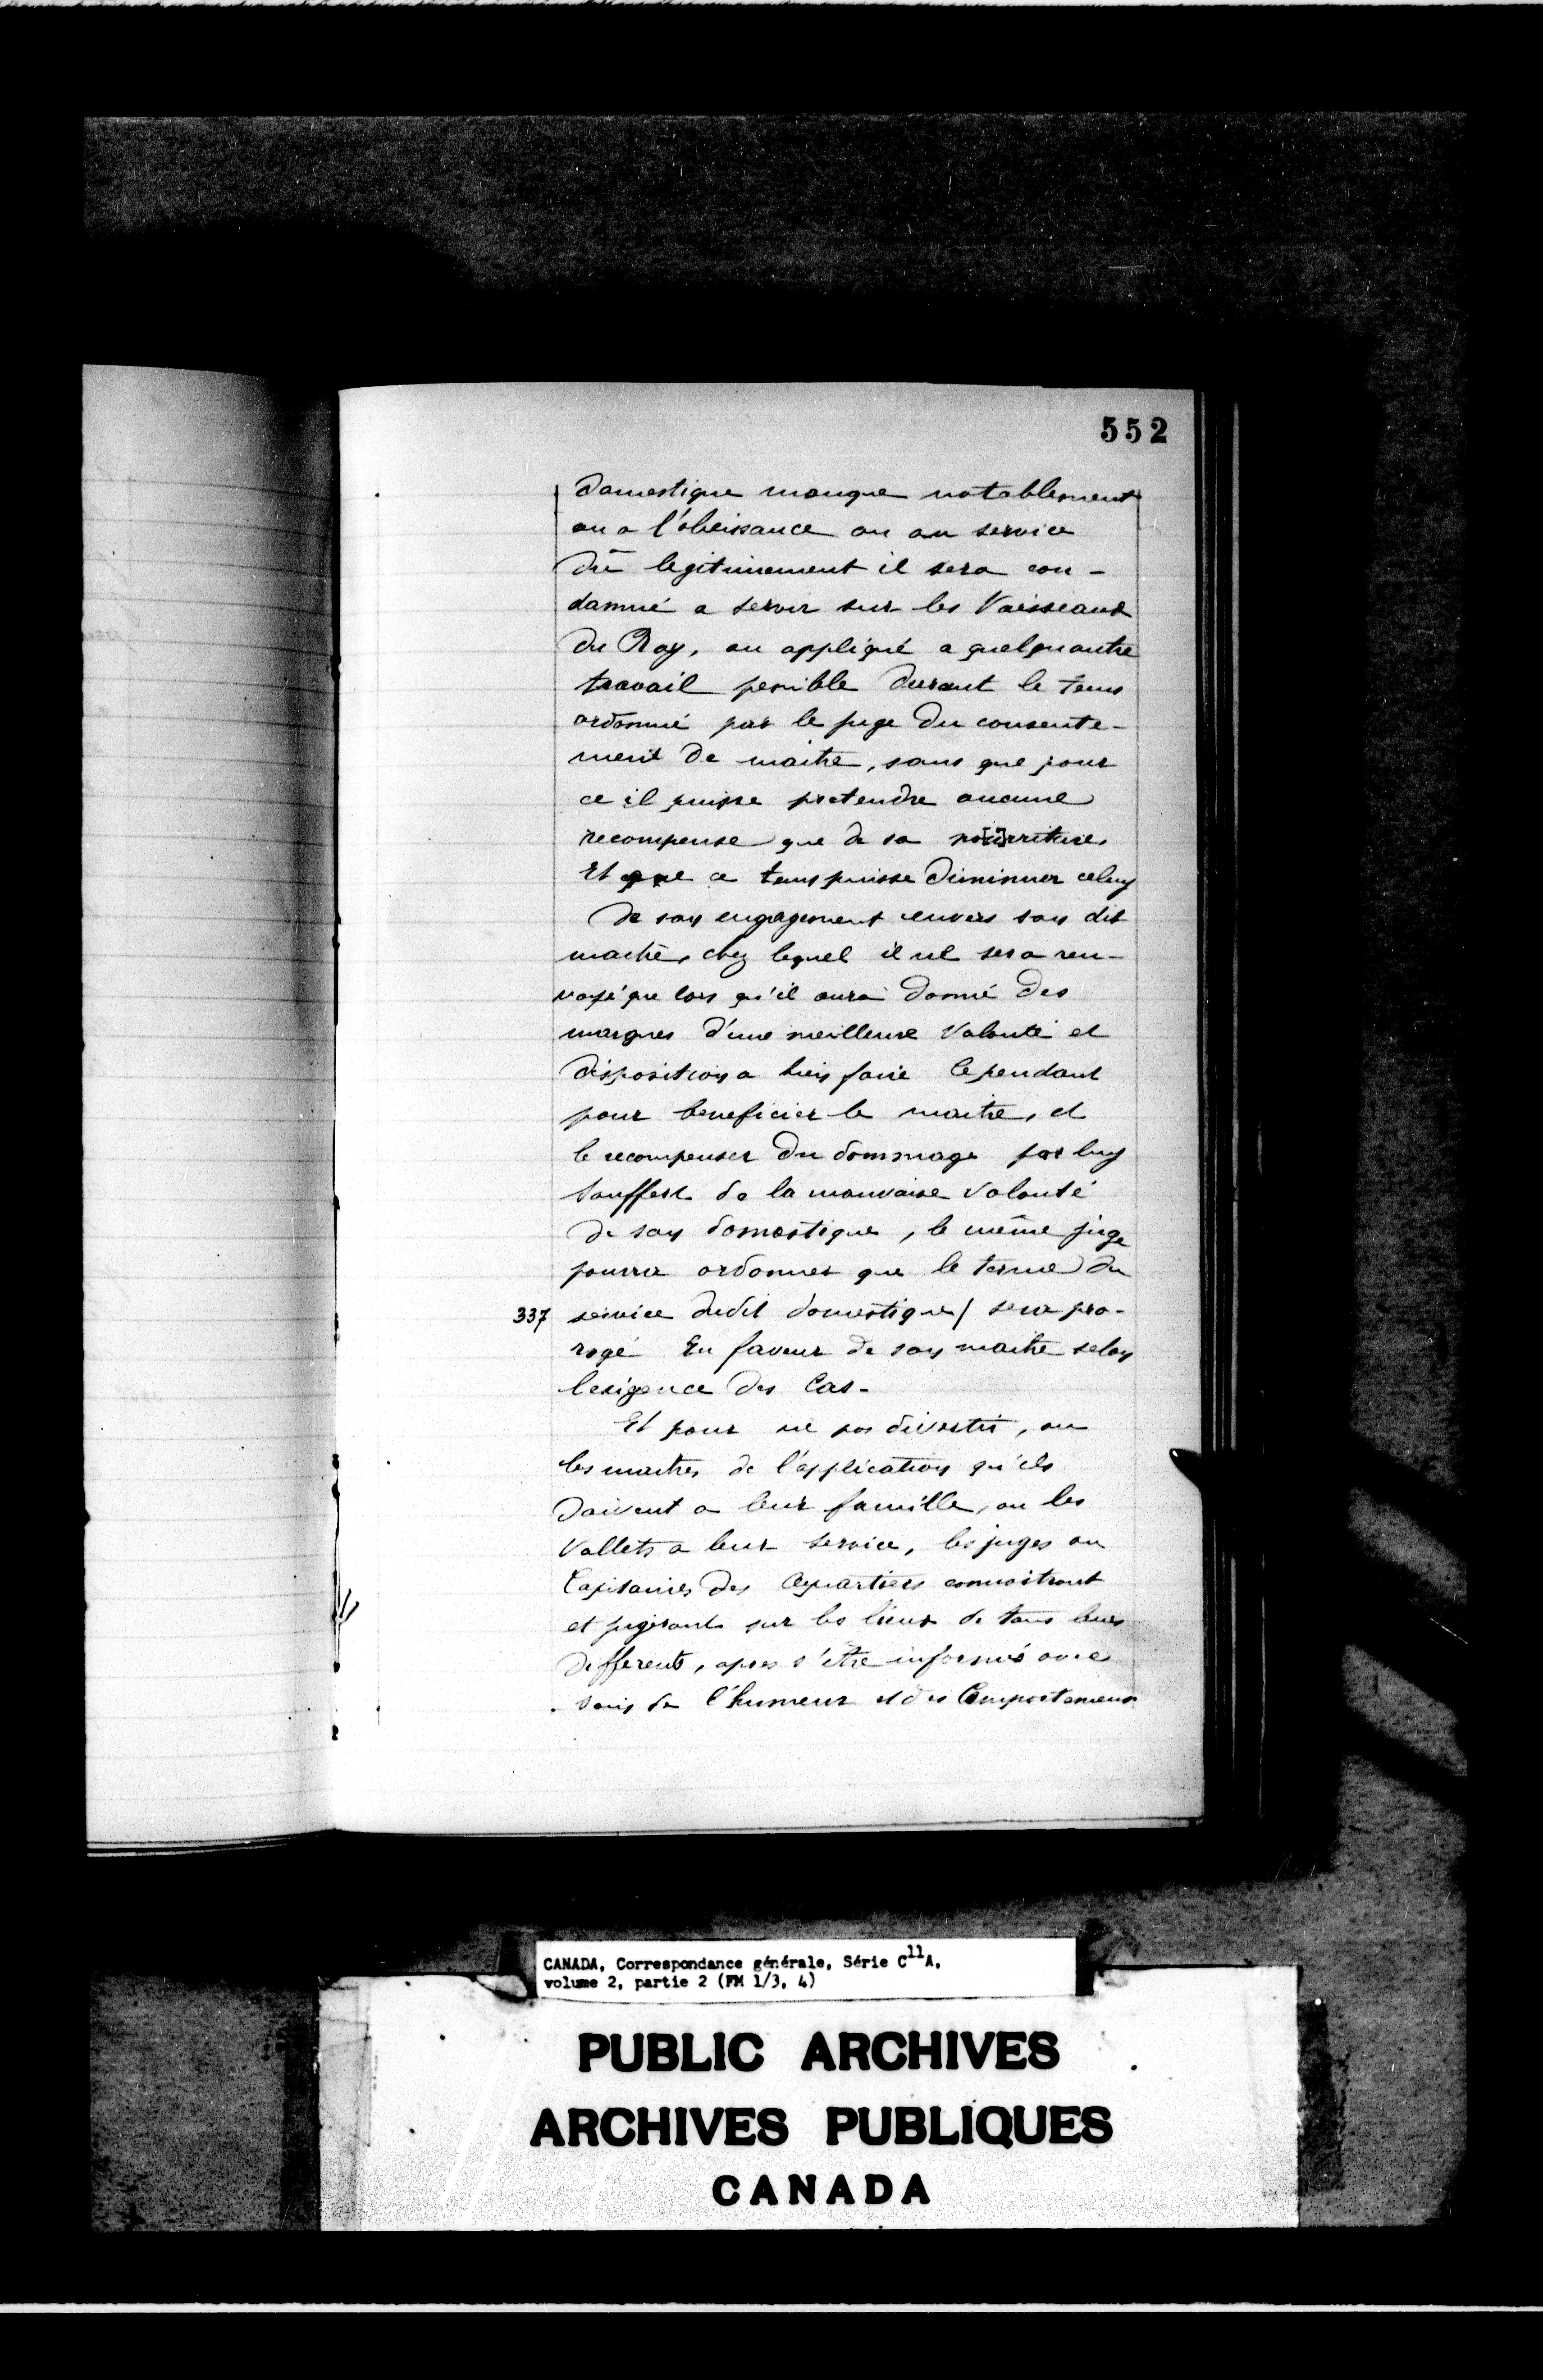 552
domestique manque notablement
ou a l'obeissance ou au service
dû legitimement il sera con-
damné a servir sur les Vaisseaux
du Roy, ou appliqué a quelqu'autre
travail penible durant le tems
ordonné par le juge du consente-
ment de maitre, sans que pour
ce il puisse pretendre aucune
recompense que de sa nourriture.
Et que ce tems puisse diminuer celuy
de son engagement envers son dit
maitre, chez lequel il ne sera ren-
voyé que lors qu'il aura donné des
marques d'une meilleure Volonté et
disposition a bien faire Cependant
pour beneficier le maitre, et
le recompenser du dommage par luy
souffert de la mauvaise Volonté
de son domestique, le même juge
pourra ordonner que le terme du
337 service dudit domestique/ sera pro-
rogé En faveur de son maitre selon
lexigence des Cas-
Et pour ne pas divertir, ou
les maitres de l'application qu'ils
doivent a leur famille, ou les
Vallets a leur service, les juges ou
Capitaines des quartiers connoitront
et jugeront sur les lieux de tous leurs
differents, apres s'être informés avec
soin de l'humeur et des Comportemens
CANADA, Correspondance générale, Série C11A,
volume 2, partie 2 (FM 1/3, 4)
PUBLIC ARCHIVES
ARCHIVES PUBLIQUES
CANADA